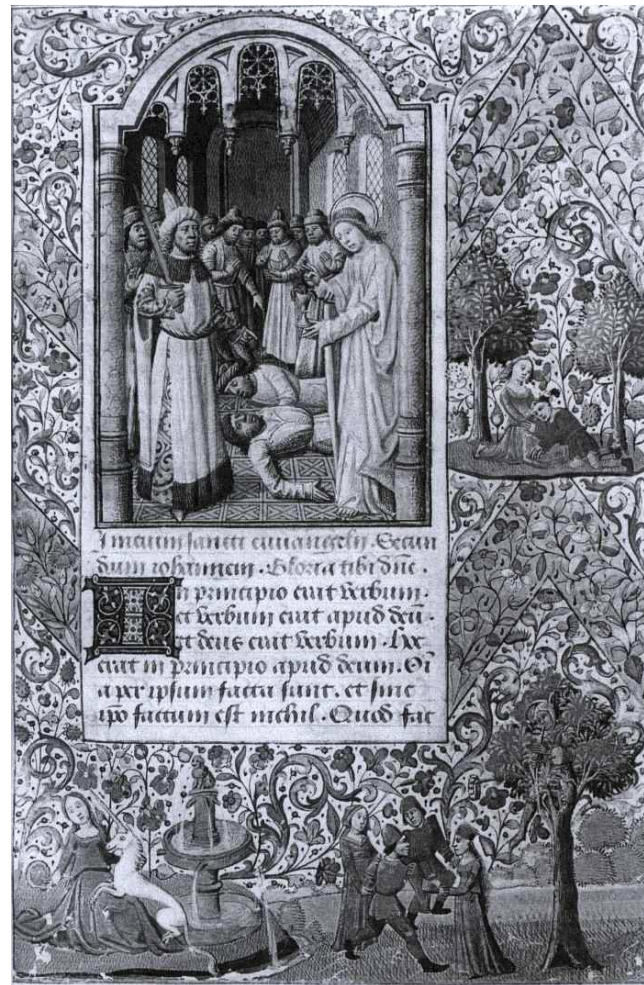 Inicium sancti euuangelij. Secun
dum iohannem. Gloria tibi dne.
In principio erat verbum.
et verbum erat apud deu.
et deus erat verbum. hoc
erat in principio apud deum. Oi
a per ipsum facta sunt. et sine
ipo factum est nichil. Quod fac